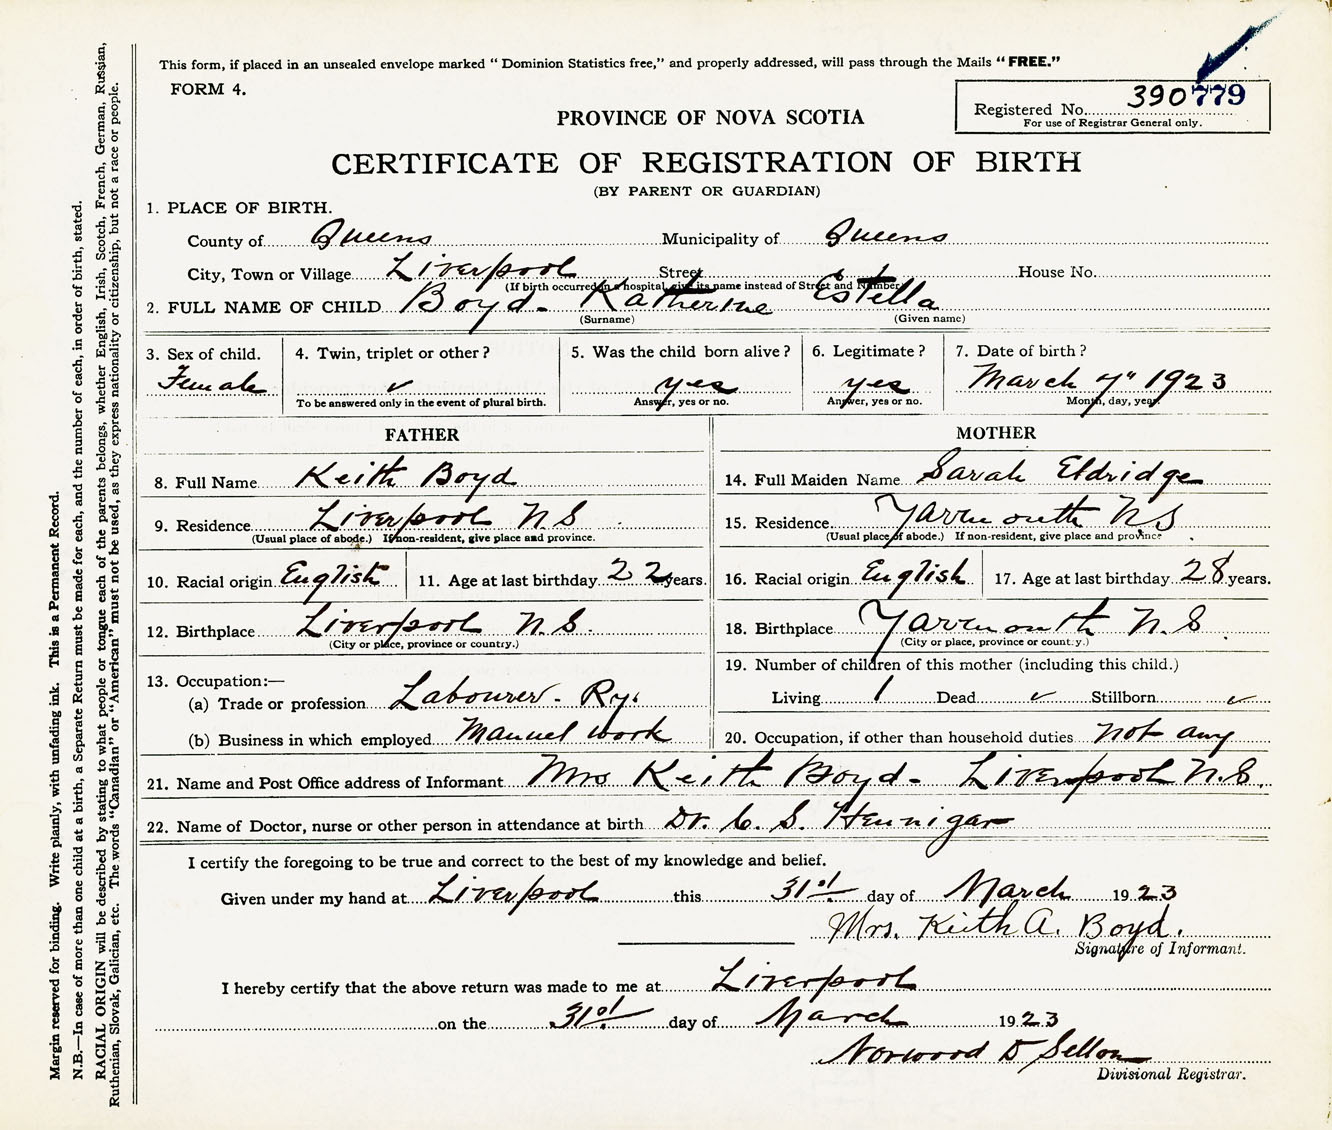 This form, if placed in an unsealed envelope marked “ Dominion Statistics free,” and properly addressed, will pass through the Mails “ FREE.”
FORM 4.
Registered No. 390779
For use of Registrar General only.
PROVINCE OF NOVA SCOTIA
CERTIFICATE OF REGISTRATION OF BIRTH
(BY PARENT OR GUARDIAN)
1. PLACE OF BIRTH.
County of Queens Municipality of Queens
City, Town or Village Liverpool Street House No.
(If birth occurred in a hospital, give its name instead of Street and Number)
2. FULL NAME OF CHILD Boyd - Katherine Estella
(Surname) (Given name)
3. Sex of child. 4. Twin, triplet or other ? 5. Was the child born alive ? 6. Legitimate ? 7. Date of birth ?
Female ✓ yes yes March 7" 1923
To be answered only in the event of plural birth. Answer, yes or no. Answer, yes or no. Month, day, year.
FATHER MOTHER
8. Full Name Keith Boyd 14. Full Maiden Name Sarah Eldridge
9. Residence Liverpool N S 15. Residence Yarmouth N S
(Usual place of abode.) If non-resident, give place and province. (Usual place of abode.) If non-resident, give place and province
10. Racial origin English 11. Age at last birthday 22 years. 16. Racial origin English 17. Age at last birthday 28 years.
12. Birthplace Liverpool N.S. 18. Birthplace Yarmouth N.S.
(City or place, province or country.) (City or place, province or country.)
13. Occupation:— 19. Number of children of this mother (including this child.)
(a) Trade or profession Labourer - Ry. Living 1 Dead ✓ Stillborn ✓
(b) Business in which employed Manuel work 20. Occupation, if other than household duties not any
21. Name and Post Office address of Informant Mrs Keith Boyd - Liverpool N.S.
22. Name of Doctor, nurse or other person in attendance at birth Dr. C. S. Hennigar
I certify the foregoing to be true and correct to the best of my knowledge and belief.
Given under my hand at Liverpool this 31st day of March 1923
Mrs. Keith A. Boyd.
Signature of Informant.
I hereby certify that the above return was made to me at Liverpool
on the 31st day of March 1923
Norwood D Sellon
Divisional Registrar.
Margin reserved for binding. Write plainly, with unfading ink. This is a Permanent Record.
N.B.—In case of more than one child at a birth, a Separate Return must be made for each, and the number of each, in order of birth, stated.
RACIAL ORIGIN will be described by stating to what people or tongue each of the parents belongs, whether English, Irish, Scotch, French, German, Russian,
Ruthenian, Slovak, Galician, etc. The words “Canadian” or “American” must not be used, as they express nationality or citizenship, but not a race or people.